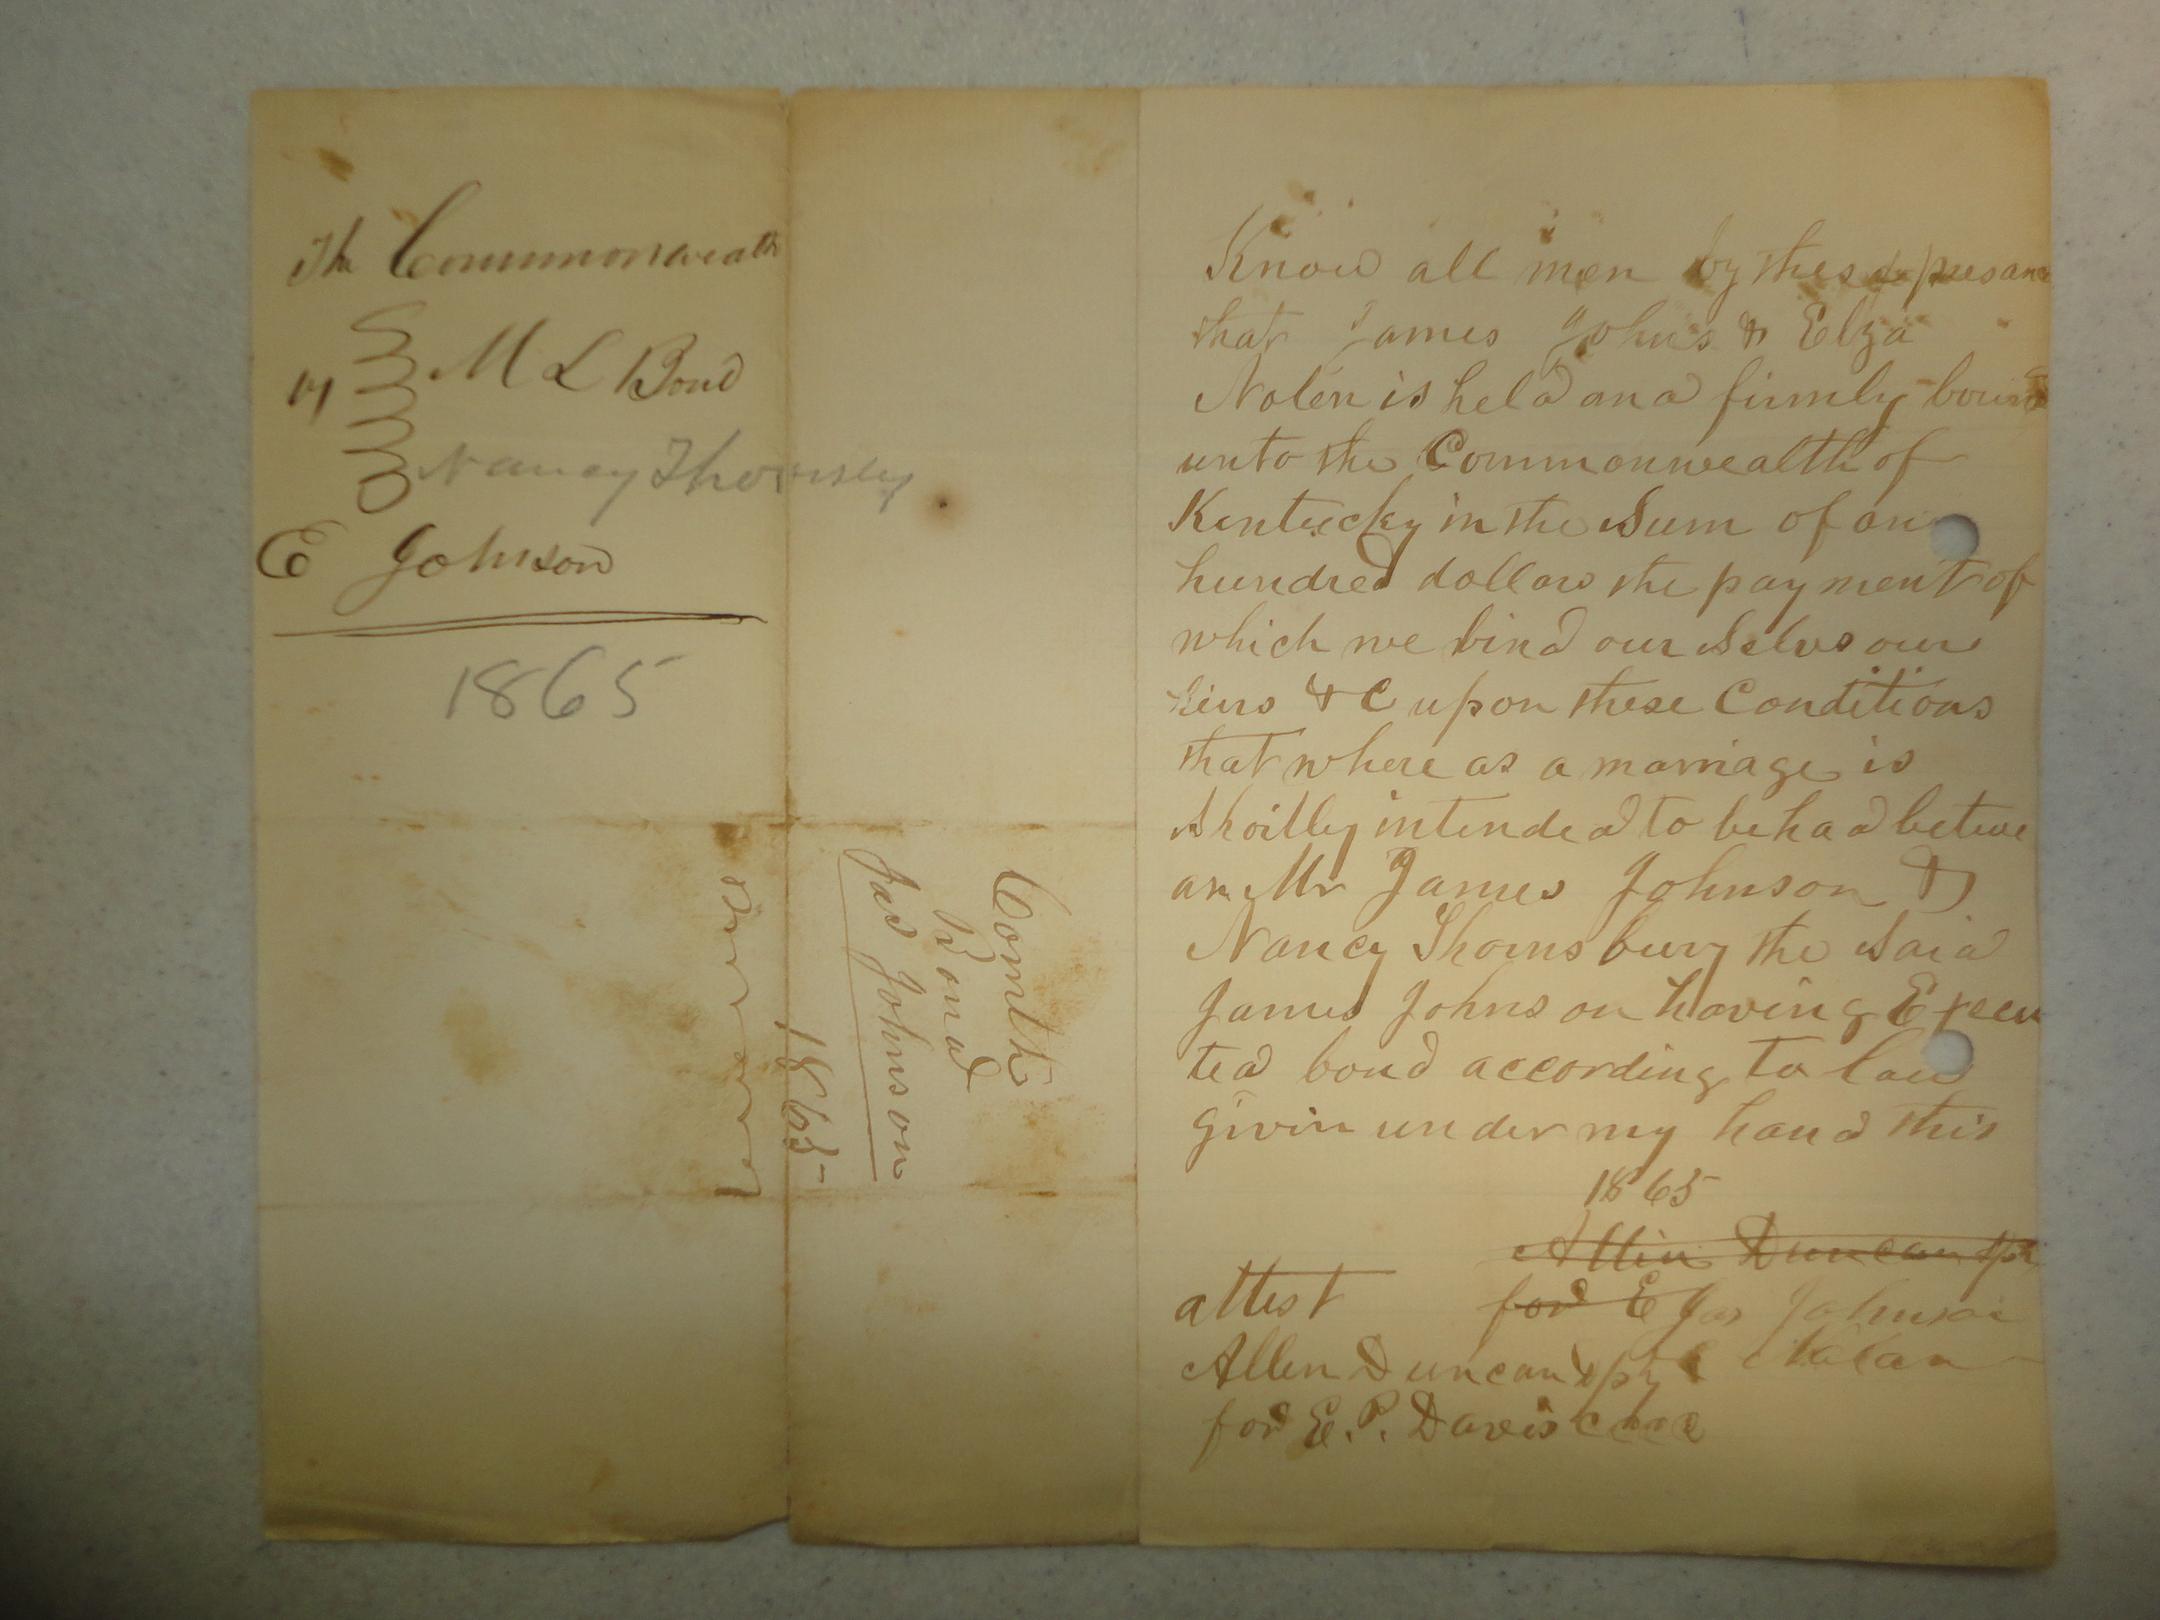 The Commonwealth
vs M L Bond
Nancy Thornsby
E Johnson
1865
Comlth
Bond
Jas Johnson
1865
Know all men by these presanc
that James Johns & Elza
Nolen is held and firmly bound
unto the Commonwealth of
Kentucky in the Sum of on
hundred dollars the payment of
which we bind our Selvs our
heirs & C upon these Conditions
that where as a marriage is
Shoitly intended to be had betwe
an Mr James Johnson &
Nancy Thornsbury the Said
James Johnson having Execu
ted bond according to law
givin under my hand this
1865
Allin Duncan
for E Jas Johnson
attest
Allen Duncan E Nolan
for E. P. Davis